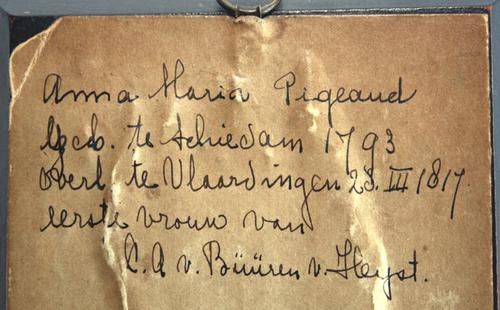 Anna Maria Pigeaud
geb. te Schiedam 1793
overl. te Vlaardingen 28. III 1817.
eerste vrouw van
L. A v. Büüren v. Heyst.